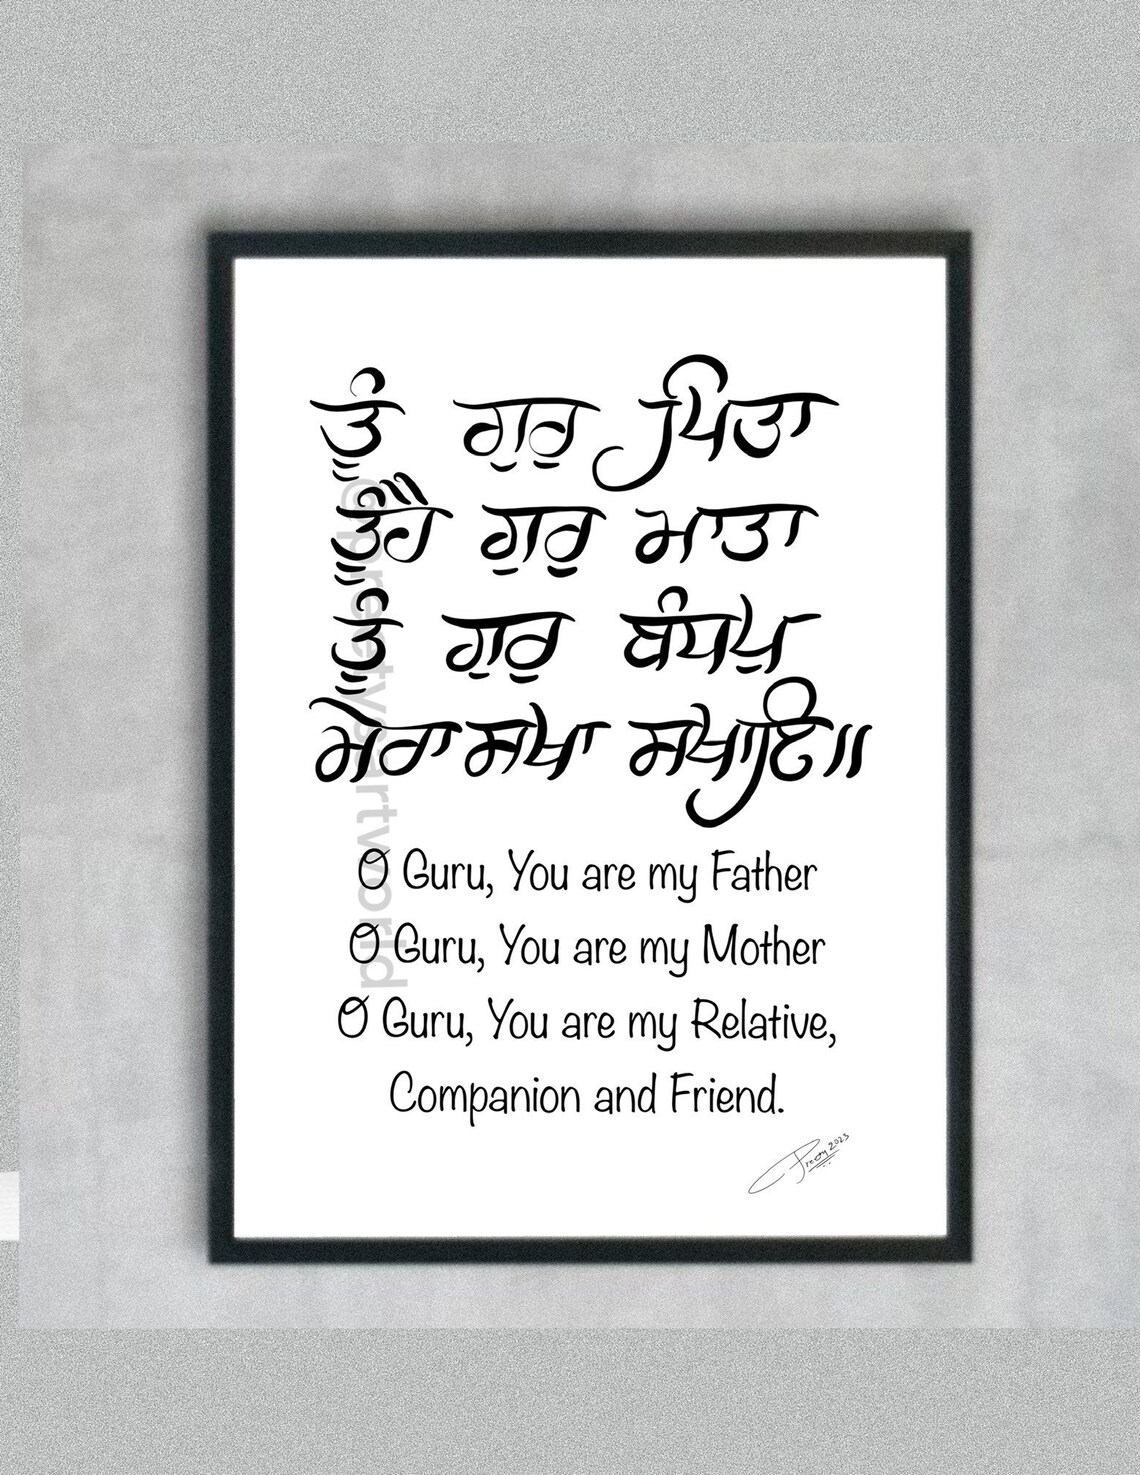 ਤੂੰ ਗੁਰੁ ਪਿਤਾ
ਤੂੰਹੈ ਗੁਰੁ ਮਾਤਾ
ਤੂੰ ਗੁਰੁ ਬੰਧਪੁ
ਮੇਰਾ ਸਖਾ ਸਖਾਇ॥
O Guru, You are my Father
O Guru, You are my Mother
O Guru, You are my Relative,
Companion and Friend.
Preety 2023
@preetysartworld